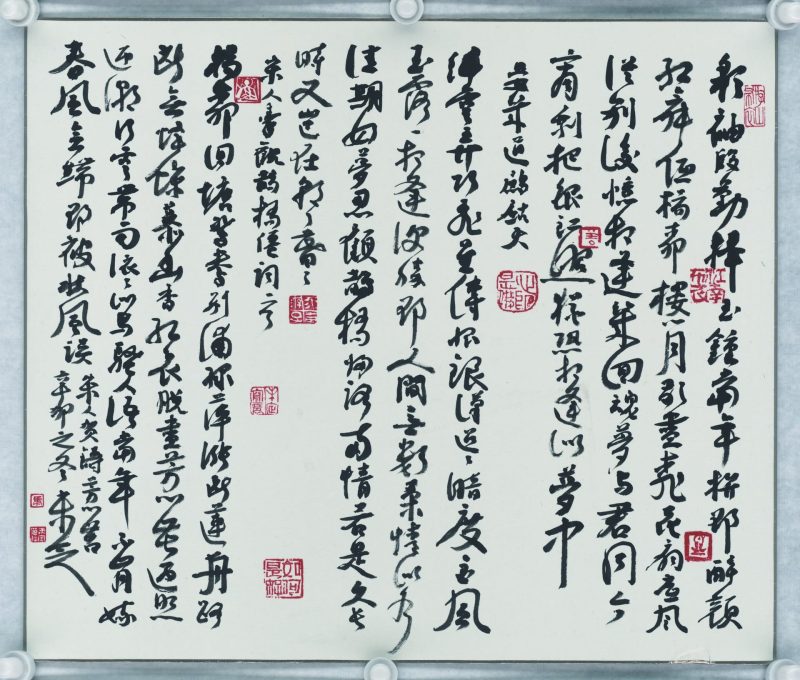 彩袖殷勤捧玉鐘當年拚却醉顏
紅舞低楊柳樓心月歌盡桃花扇底風
從別後憶相逢幾回魂夢與君同今
宵剩把銀釭照猶恐相逢似夢中
晏幾道鷓鴣天
纖雲弄巧飛星傳恨銀漢迢迢暗度金風
玉露一相逢便勝却人間無數柔情似水
佳期如夢忍顧鵲橋歸路兩情若是久長
時又豈在朝朝暮暮
宋人秦觀鵲橋仙詞
楊柳回塘鴛鴦別浦綠萍漲斷蓮舟路
斷無蜂蝶慕幽香紅衣脫盡芳心苦返照
迎潮行雲帶雨依依似與騷人語當年不肯嫁
春風無端却被秋風誤
宋人賀鑄芳心苦
辛卯之冬
江南布衣